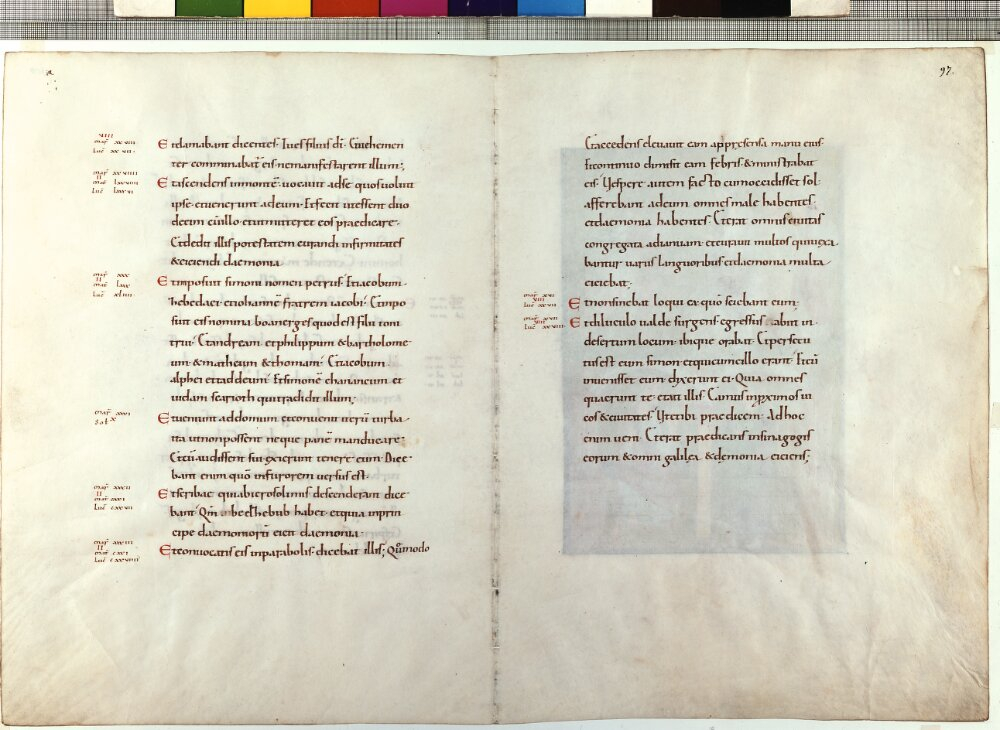 Et clamabant dicentes. Tu es filius dī. Et uehemen
ter comminabat eis ne manifestarent illum;
Et ascendens in montē. uocauit ad se quos uoluit
ipse. et uenerunt ad eum. Et fecit ut essent duo
decim cū illo. et ut mitteret eos praedicare.
Et dedit illis potestatem curandi infirmitates
& eiciendi daemonia.
Et imposuit simoni nomen petrus. Et iacobum
zebedaei. et iohannē fratrem iacobi. Et impo
suit eis nomina boanerges quod est filii toni
trui. Et andream. et philippum & bartholome
um. & matheum & thomam. Et iacobum
alphei et taddeum. Et simonē chananeum. et
iudam scarioth qui tradidit illum;
Et ueniunt ad domum. et conuenit iterū turba
ita ut non possent neque panē manducare.
Et cū audissent sui. exierunt tenere eum. Dice
bant enim quō in furorem uersus est.
Et scribae qui ab ierosolimis descenderant dice
bant. Qm̄ beelzebub habet. et quia in prin
cipe daemoniorū eicit daemonia.
Et conuocatis eis in parabolis dicebat illis; Quomodo
97.
Et accedens eleuauit eam appraehensa manu eius.
Et continuo dimisit eam febris. & ministrabat
eis. Uespere autem facto cum occidisset sol.
afferebant ad eum omnes male habentes.
et daemonia habentes. Et erat omnis ciuitas
congregata ad ianuam. et curauit multos qui uexa
bantur uariis languoribus. et daemonia multa
eiciebat.
Et non sinebat loqui ea quō sciebant eum.
Et diluculo ualde surgens. egressus abiit in
desertum locum. ibique orabat. Et persecu
tus est eum simon. et qui cum illo erant. Et cū
inuenissent eum. dixerunt ei. Quia omnes
quaerunt te. et ait illis. Eamus in proximos ui
cos & ciuitates. Ut et ibi praedicem. Ad hoc
enim ueni. Et erat praedicans in sinagogis
eorum. & omni galilea. & demonia eiciens;